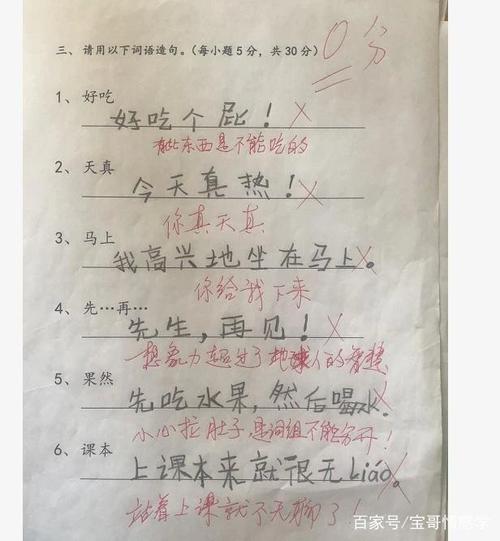 0分
三、请用以下词语造句。（每小题5分，共30分）
1、好吃
好吃个屁！
有些东西是不能吃的
2、天真
今天真热！
你真天真
3、马上
我高兴地坐在马上。
你给我下来
4、先…再…
先生，再见！
想象力超过了地球人的智慧
5、果然
先吃水果，然后喝水。
小心拉肚子，是词组不能分开！
6、课本
上课本来就很无Liáo。
站着上课就不无聊了！
百家号/宝哥情感学